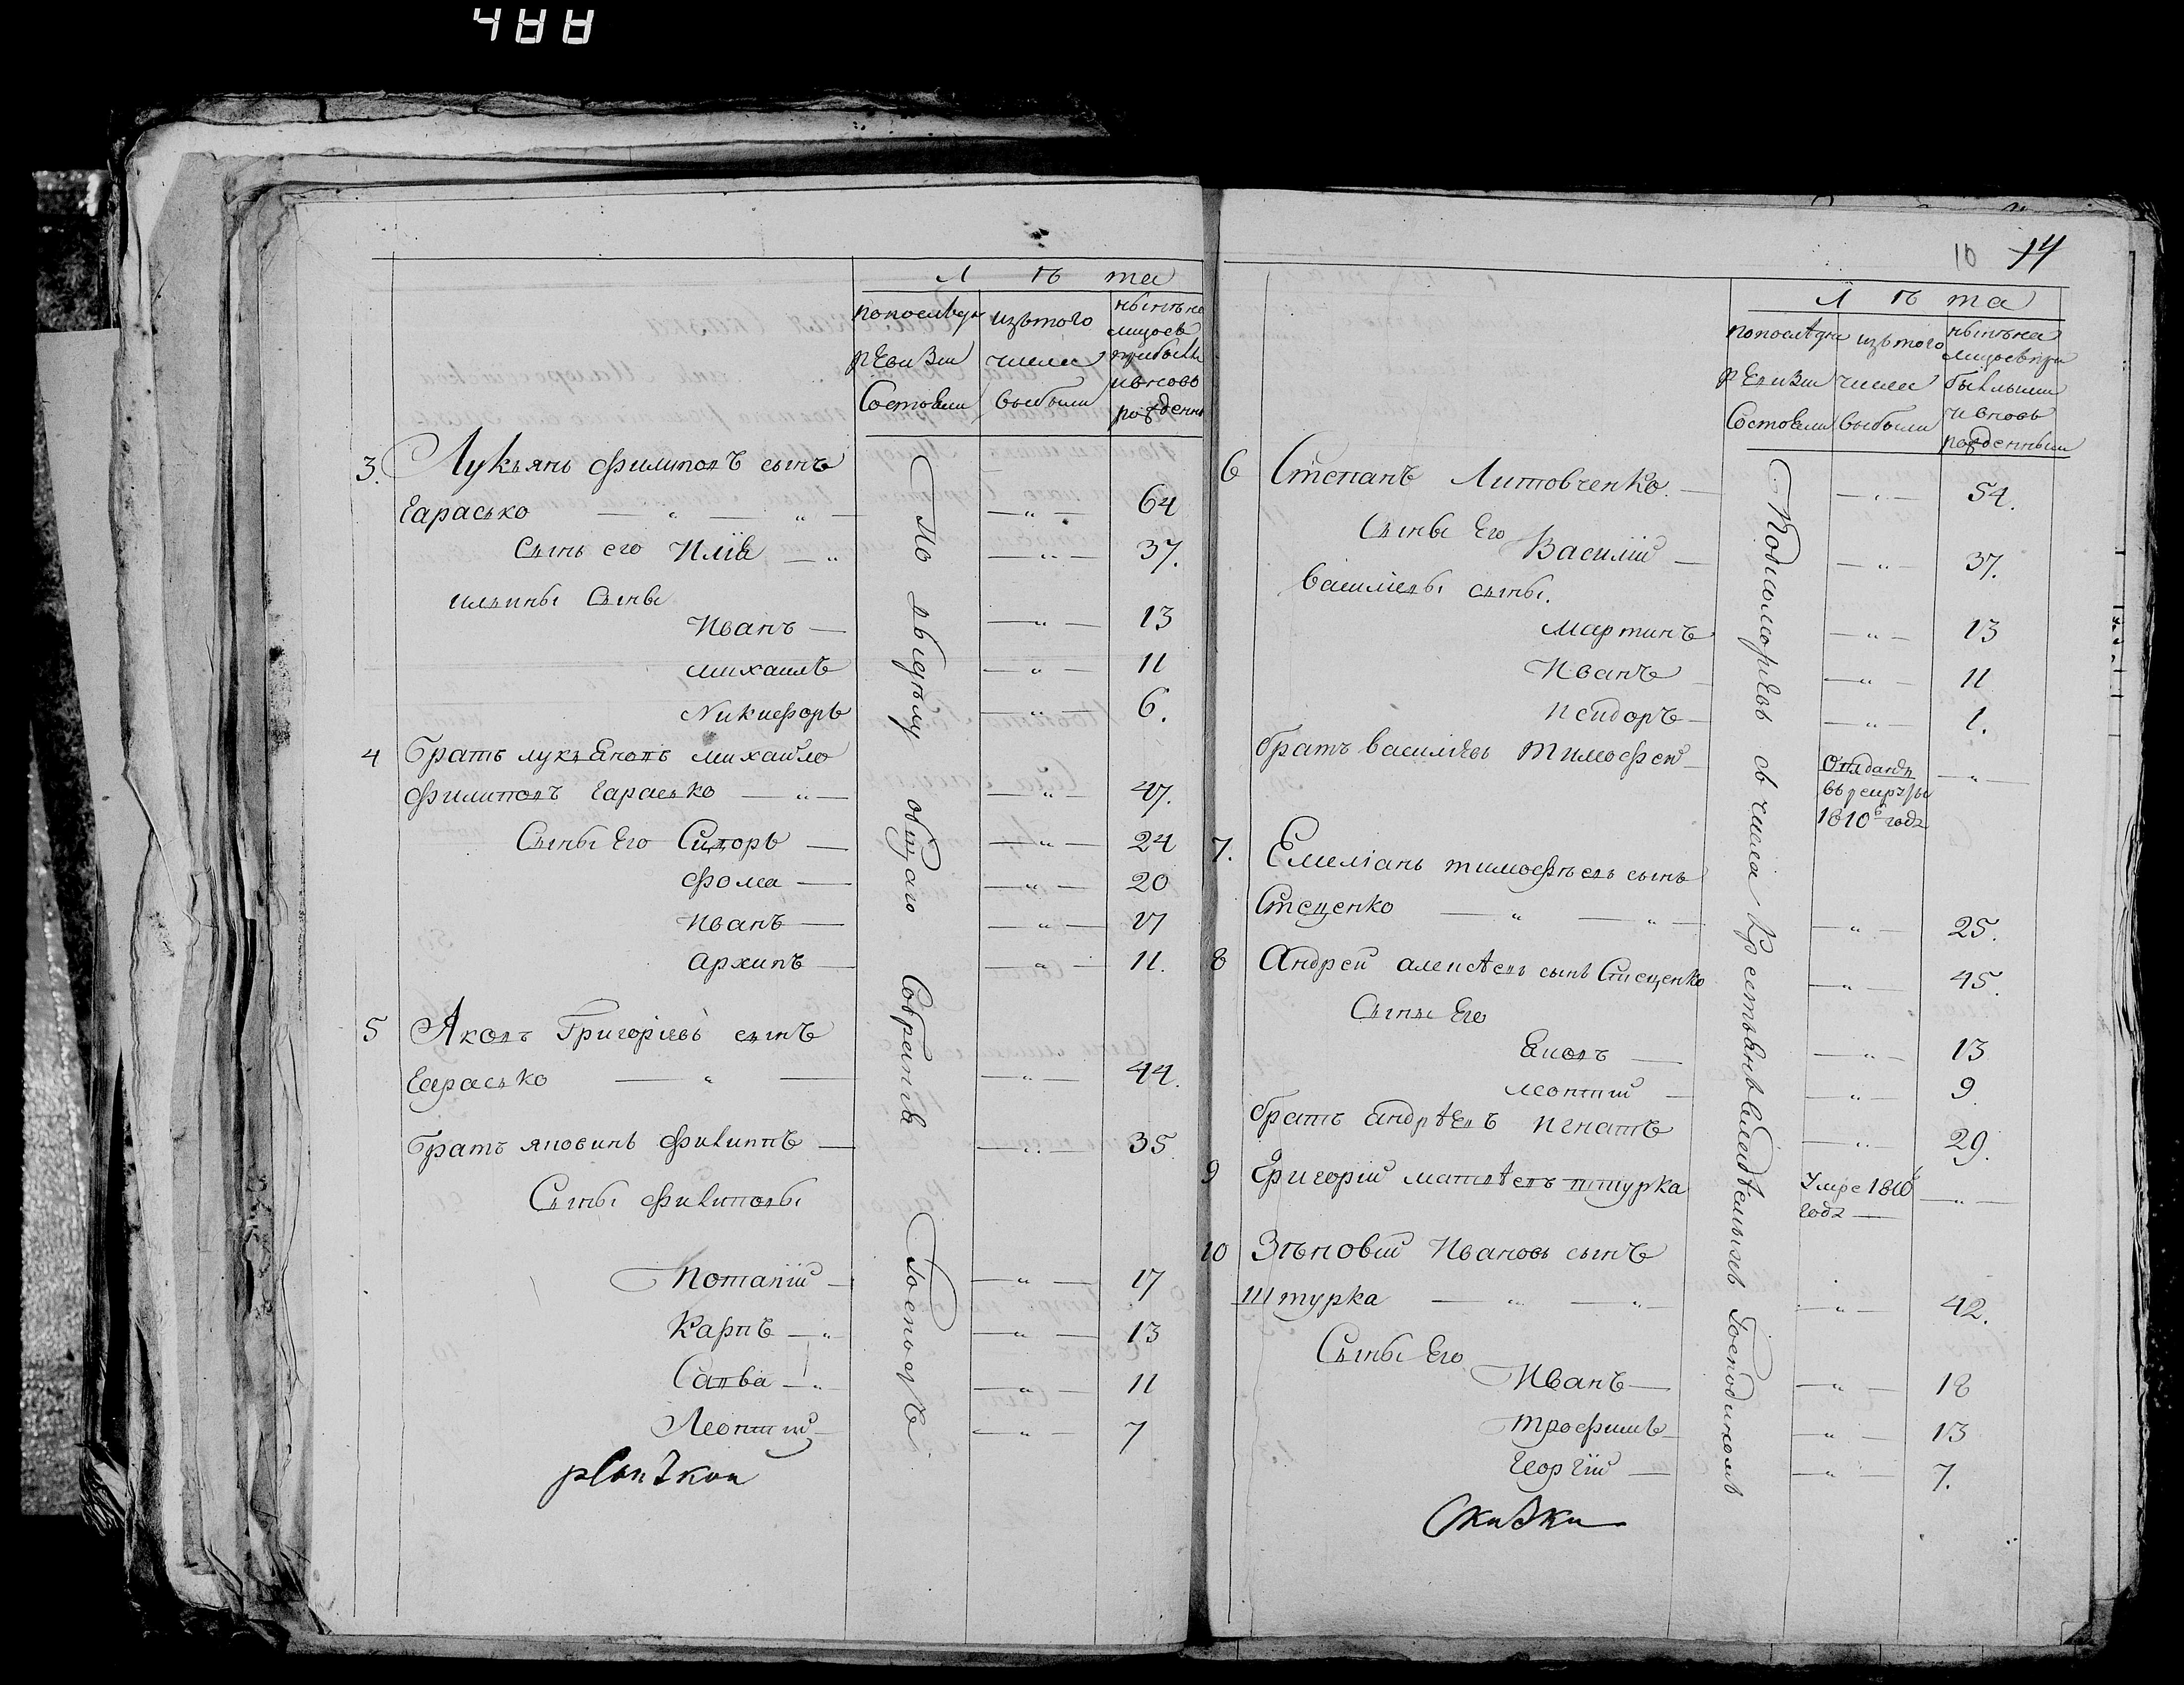 488
Лѣта
попослѣдн
ревизіи
Состояли
изътого
числа
выбыли
нынѣ на
лицосъ
прибыли
ивновь
рожденны
3. Лукьянъ филиповъ сынъ
Гарасько — „ — „ — „ — 64
Сынъ его Илія — „ — „ — 37.
ильины Сыны
Иванъ — — „ — 13
михаилъ — „ — 11
Никифоръ — „ — 6.
4 братъ лукьяновъ михайло
филиповъ Гарасько — „ — — „ — 47.
Сыны Его Сидоръ — — „ — 24
фома — — „ — 20
Иванъ — — „ — 17
архипъ — — „ — 11.
5 Яковъ Григоріевъ сынъ
Гарасько — „ — — „ — 44.
братъ яковинъ филиппъ — — „ — 35
Сыны филиповы
Потапій — — „ — 17
Карпъ — „ — „ — 13
Савва — „ — „ — 11
Леонтій — — „ — 7
По общаго Собранія Господъ
10 14
Лѣта
попослѣдне
ревизіи
Состояли
изътого
числа
выбыли
нынѣ на
лицосъ при
бывшими
ивновь
рожденными
6 Степанъ Литовченко. — — „ — 54.
Сыны Его
Василій — — „ — 37.
василіевы сыны.
мартинъ — „ — 13
Иванъ — „ — 11
исидоръ — — „ — 1.
братъ василіевъ тимофей — Отданъ — „ —
въ рекруты
1810 года
7. Емеліанъ тимофѣевъ сынъ
Стеценко — „ — „ — — „ — 25.
8 андрей алексѣевъ сынъ Стеценко — „ — 45.
Сыны Его
яковъ — — „ — 13
леонтій — — „ — 9
братъ андрѣевъ игнатъ — „ — 29.
9 Григорій матвѣевъ штурка Умре 1810 — „ —
года —
10 Зѣновій Ивановъ сынъ
штурка — „ — „ — — „ — 42.
Сыны Его
Иванъ — — „ — 18
трофимъ — — „ — 13
георгій — — „ — 7.
въ числе Крестьянъ Господиномъ
Сказки